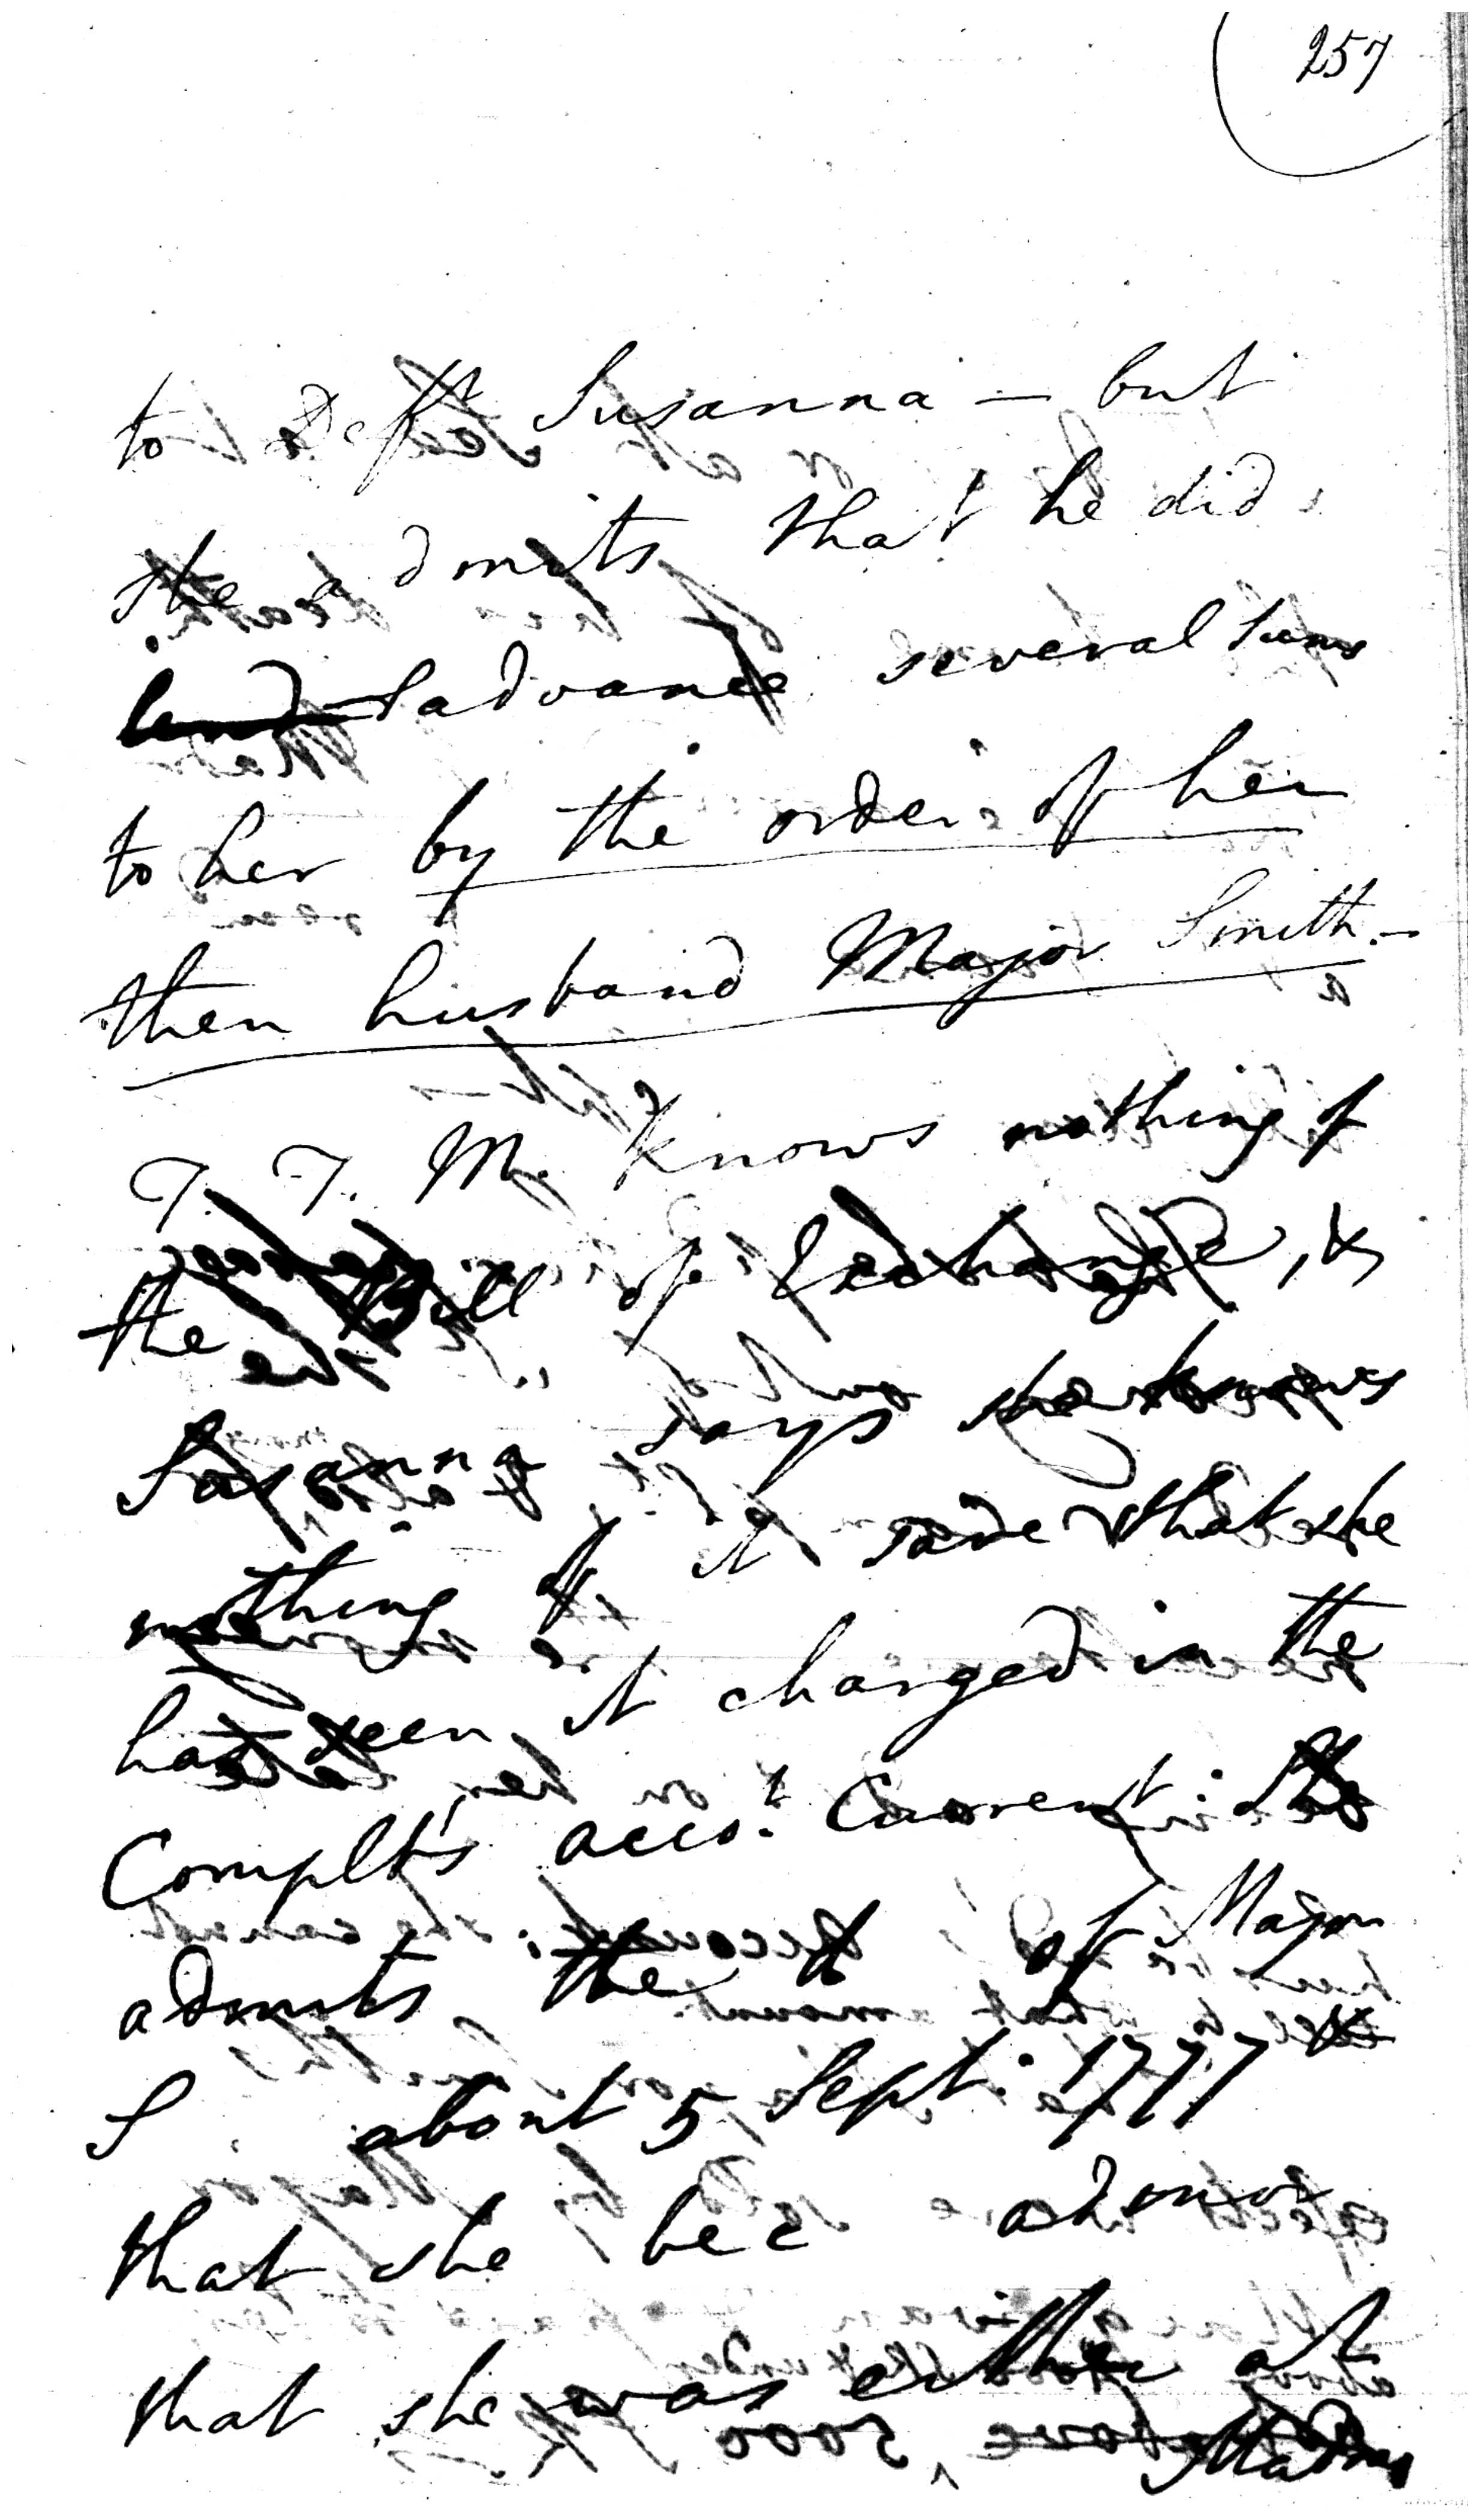 257
to Deft Susanna — but
she admits that he did
lend & advance several sums
to her by the order of her
then husband Major Smith. —
T. T. M. knows nothing of
the Bill of Exchange, &
Susanna says she knows
nothing of it save that she
has seen it charged in the
Complts acco.t Current: She
admits the d of Major
S about 5 Sept: 1777 &
that she bec admx
that she was either at
Madras